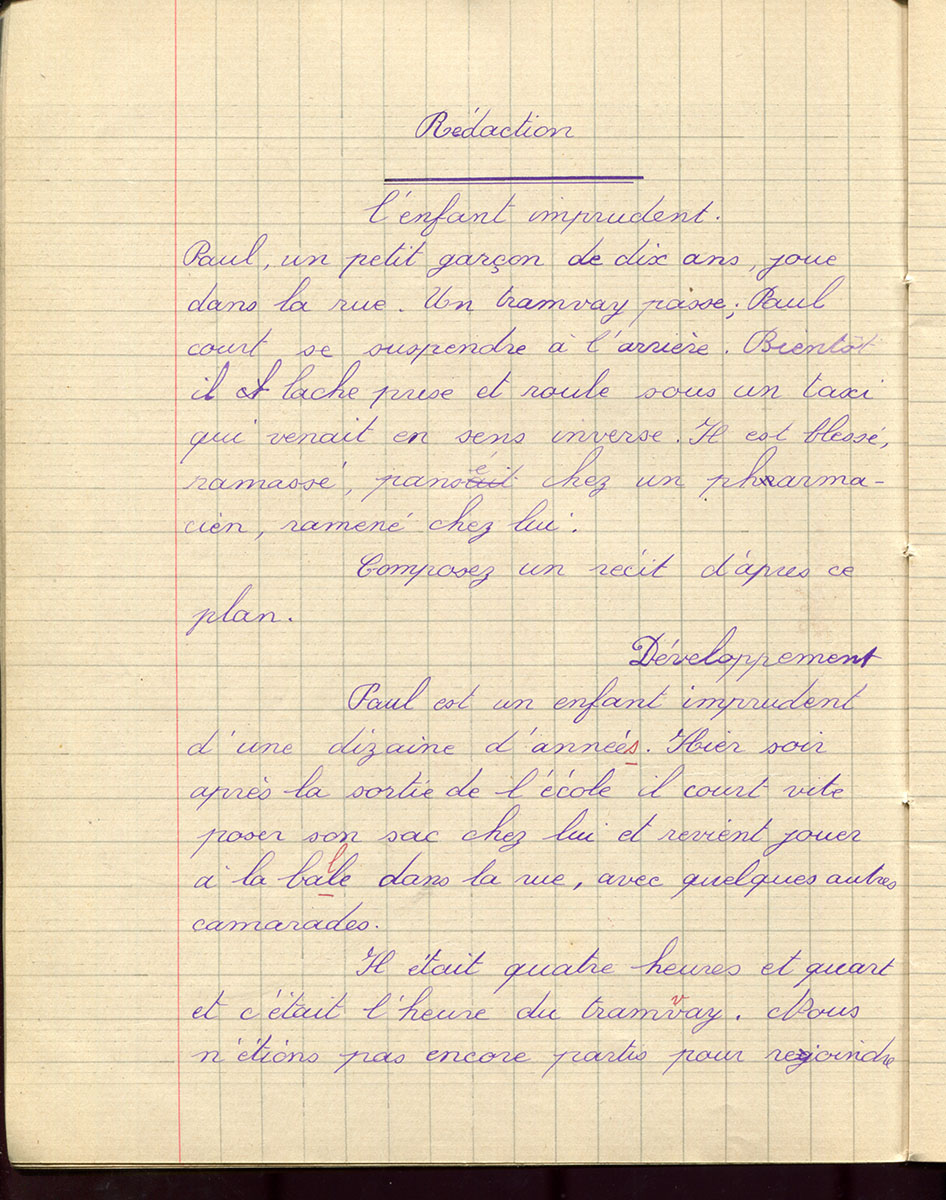 Rédaction
l'enfant imprudent.
Paul, un petit garçon de dix ans, joue
dans la rue. Un tramvay passe; Paul
court se suspendre à l'arrière. Bientôt
il lache prise et roule sous un taxi
qui venait en sens inverse. Il est blessé,
ramassé, pansé chez un pharma-
cien, ramené chez lui.
Composez un récit d'après ce
plan.
Développement
Paul est un enfant imprudent
d'une dizaine d'années. Hier soir
après la sortie de l'école il court vite
poser son sac chez lui et revient jouer
à la balle dans la rue, avec quelques autres
camarades.
Il était quatre heures et quart
et c'était l'heure du tramvay. Nous
n'étions pas encore partis pour rejoindre